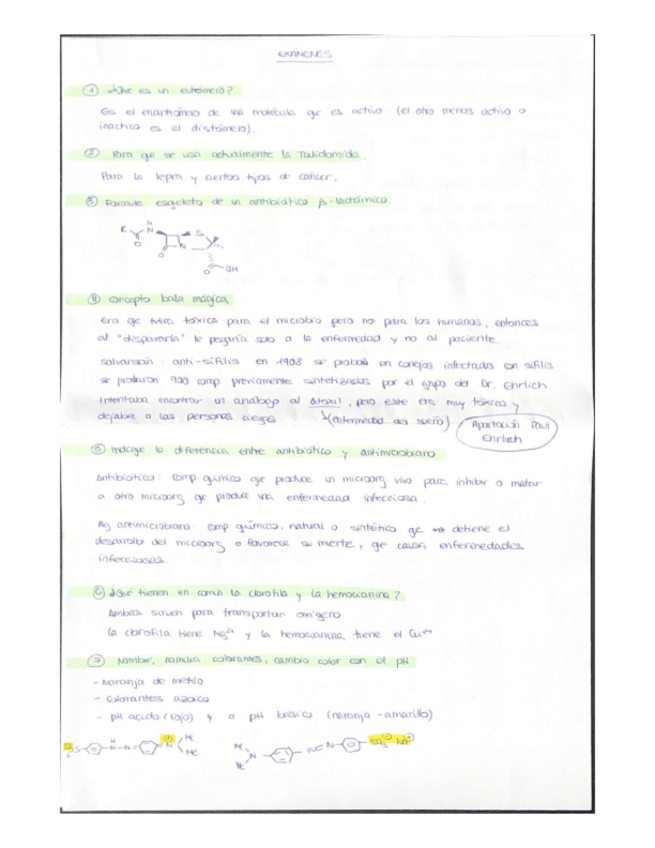 EXÁMENES
① ¿Qué es un eutómero?
Es el enantiómero de una molécula que es activo (el otro menos activo o
inactivo es el distómero).
② Para qe se usa actualmente la Talidomida.
Para la lepra y ciertos tipos de cáncer.
③ Formule esqueleto de un antibiótico β-lactámico
R N H O S N O O OH
④ concepto bala mágica
Era qe fuera tóxica para el microbio pero no para los humanos, entonces
al "dispararla" le pegaría solo a la enfermedad y no al paciente.
salvarsán: anti-sífilis en 1908 se probó en conejos infectados con sífilis
se probaron 900 comp previamente sintetizados por el grupo del Dr. Ehrlich
Intentaba encontrar un análogo al Atoxil, pero este era muy tóxico y
dejaba a las personas ciegas ↳(enfermedad del sueño)
Aportación Paul
Ehrlich
⑤ Indique la diferencia entre antibiótico y antimicrobiano
Antibiótico: comp. químico qe produce un microorg vivo para inhibir o matar
a otro microorg qe produce una enfermedad infecciosa.
Ag. antimicrobiano: comp químico, natural o sintético qe detiene el
desarrollo del microorg o favorece su muerte, qe causa enfermedades
infecciosas.
⑥ ¿Qué tienen en común la clorofila y la hemocianina?
Ambas sirven para transportar oxígeno
la clorofila tiene Mg²⁺ y la hemocianina tiene el Cu⁺⁺
⑦ Nombre, familia colorantes, cambio color con el pH
- Naranja de metilo
- Colorantes azoico
- pH ácido (rojo) y a pH básico (naranja-amarillo)